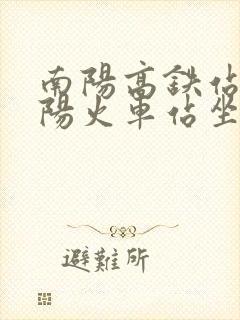 南陽高鉄佔
陽火車佔坐
避難所